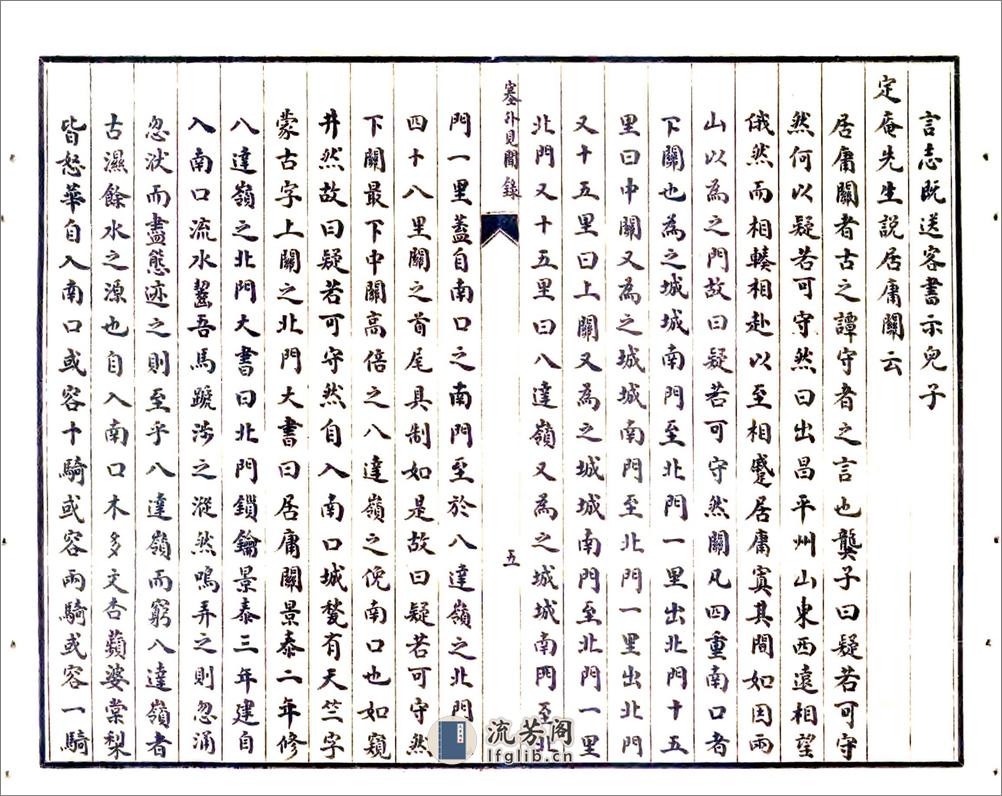 言志既送客書示兒子
定庵先生説居庸關云
居庸關者古之譚守者之言也龔子曰疑若可守
然何以疑若可守然曰出昌平州山東西遠相望
俄然而相輳相赴以至相蹙居庸寘其間如因兩
山以為之門故曰疑若可守然關凡四重南口者
下關也為之城城南門至北門一里出北門十五
里曰中關又為之城城南門至北門一里出北門
又十五里曰上關又為之城城南門至北門一里
北門又十五里曰八達嶺又為之城城南門至北
塞外見聞錄
五
門一里蓋自南口之南門至於八達嶺之北門
四十八里關之首尾具制如是故曰疑若可守然
下關最下中關高倍之八達嶺之俛南口也如窺
井然故曰疑若可守然自入南口城甃有天竺字
蒙古字上關之北門大書曰居庸關景泰二年修
八達嶺之北門大書曰北門鎖鑰景泰三年建自
入南口流水齧吾馬蹏涉之漎然鳴弄之則忽涌
忽洑而盡態迹之則至乎八達嶺而窮八達嶺者
古濕餘水之源也自入南口木多文杏蘋婆棠梨
皆怒華自入南口或容十騎或容兩騎或容一騎
流芳阁
lfglib.cn